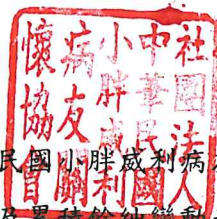 社團法人
中華民國
小胖威利
病友關
懷協會
民國小胖威利病